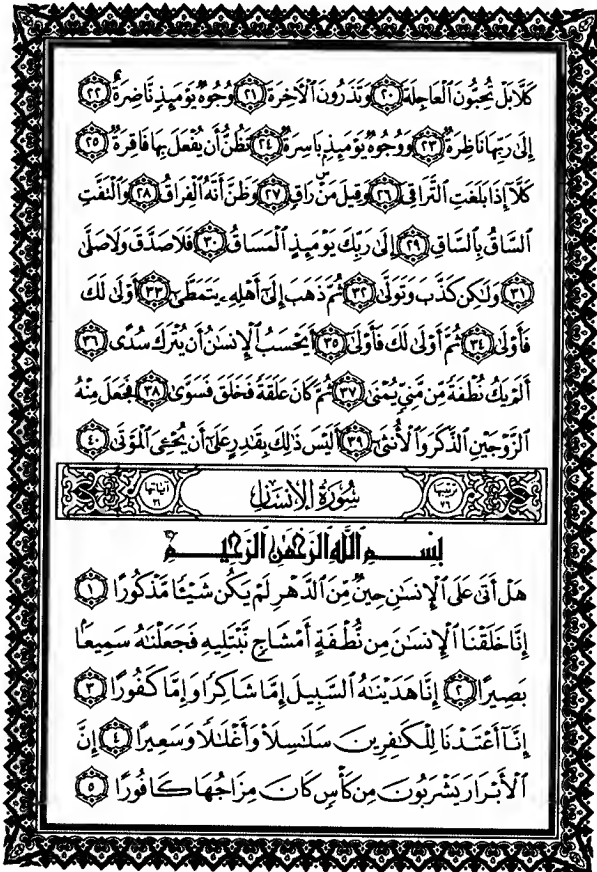 كَلَّا بَلْ تُحِبُّونَ ٱلْعَاجِلَةَ ٢٠ وَتَذَرُونَ ٱلْآخِرَةَ ٢١ وُجُوهٌ يَوْمَئِذٍ نَّاضِرَةٌ ٢٢
إِلَىٰ رَبِّهَا نَاظِرَةٌ ٢٣ وَوُجُوهٌ يَوْمَئِذٍ بَاسِرَةٌ ٢٤ تَظُنُّ أَن يُفْعَلَ بِهَا فَاقِرَةٌ ٢٥
كَلَّا إِذَا بَلَغَتِ ٱلتَّرَاقِيَ ٢٦ وَقِيلَ مَنْ رَاقٍ ٢٧ وَظَنَّ أَنَّهُ ٱلْفِرَاقُ ٢٨ وَٱلْتَفَّتِ
ٱلسَّاقُ بِٱلسَّاقِ ٢٩ إِلَىٰ رَبِّكَ يَوْمَئِذٍ ٱلْمَسَاقُ ٣٠ فَلَا صَدَّقَ وَلَا صَلَّىٰ
٣١ وَلَٰكِن كَذَّبَ وَتَوَلَّىٰ ٣٢ ثُمَّ ذَهَبَ إِلَىٰٓ أَهْلِهِۦ يَتَمَطَّىٰٓ ٣٣ أَوْلَىٰ لَكَ
فَأَوْلَىٰ ٣٤ ثُمَّ أَوْلَىٰ لَكَ فَأَوْلَىٰٓ ٣٥ أَيَحْسَبُ ٱلْإِنسَٰنُ أَن يُتْرَكَ سُدًى ٣٦
أَلَمْ يَكُ نُطْفَةً مِّن مَّنِيٍّ يُمْنَىٰ ٣٧ ثُمَّ كَانَ عَلَقَةً فَخَلَقَ فَسَوَّىٰ ٣٨ فَجَعَلَ مِنْهُ
ٱلزَّوْجَيْنِ ٱلذَّكَرَ وَٱلْأُنثَىٰٓ ٣٩ أَلَيْسَ ذَٰلِكَ بِقَٰدِرٍ عَلَىٰٓ أَن يُحْـِۧيَ ٱلْمَوْتَىٰ ٤٠
ترتيبها ٧٦ سُورَةُ الإِنسَانِ آياتها ٣١
بِسْمِ ٱللَّهِ ٱلرَّحْمَٰنِ ٱلرَّحِيمِ
هَلْ أَتَىٰ عَلَى ٱلْإِنسَٰنِ حِينٌ مِّنَ ٱلدَّهْرِ لَمْ يَكُن شَيْـًٔا مَّذْكُورًا ١
إِنَّا خَلَقْنَا ٱلْإِنسَٰنَ مِن نُّطْفَةٍ أَمْشَاجٍ نَّبْتَلِيهِ فَجَعَلْنَٰهُ سَمِيعًۢا
بَصِيرًا ٢ إِنَّا هَدَيْنَٰهُ ٱلسَّبِيلَ إِمَّا شَاكِرًا وَإِمَّا كَفُورًا ٣
إِنَّآ أَعْتَدْنَا لِلْكَٰفِرِينَ سَلَٰسِلَا۟ وَأَغْلَٰلًا وَسَعِيرًا ٤ إِنَّ
ٱلْأَبْرَارَ يَشْرَبُونَ مِن كَأْسٍ كَانَ مِزَاجُهَا كَافُورًا ٥